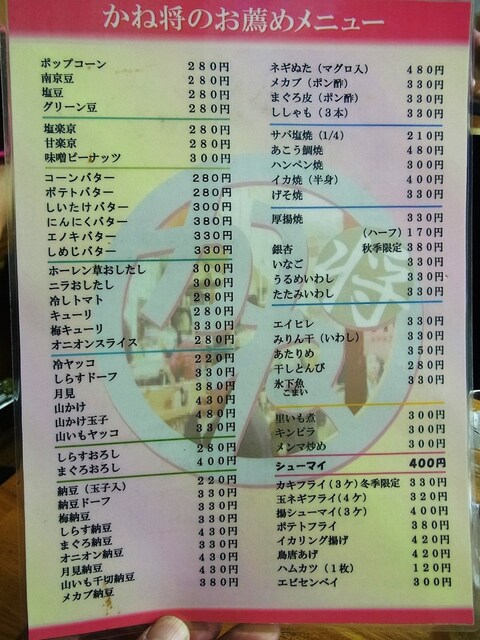 かね将のお薦めメニュー
ポップコーン 280円
南京豆 280円
塩豆 280円
グリーン豆 280円
塩楽京 280円
甘楽京 280円
味噌ピーナッツ 300円
コーンバター 280円
ポテトバター 280円
しいたけバター 300円
にんにくバター 380円
エノキバター 330円
しめじバター 330円
ホーレン草おしたし 300円
ニラおしたし 300円
冷しトマト 280円
キューリ 280円
梅キューリ 330円
オニオンスライス 280円
冷ヤッコ 220円
しらすドーフ 330円
月見 380円
山かけ 430円
山かけ玉子 480円
山いもヤッコ 330円
しらすおろし 280円
まぐろおろし 400円
納豆（玉子入） 220円
納豆ドーフ 330円
梅納豆 330円
しらす納豆 330円
まぐろ納豆 430円
オニオン納豆 330円
月見納豆 430円
山いも千切納豆 430円
メカブ納豆 380円
ネギぬた（マグロ入） 480円
メカブ（ポン酢） 330円
まぐろ皮（ポン酢） 330円
ししゃも（3本） 330円
サバ塩焼（1/4） 210円
あこう鯛焼 480円
ハンペン焼 300円
イカ焼（半身） 430円
げそ焼 330円
厚揚焼 330円
（ハーフ）170円
銀杏 秋季限定 380円
いなご 330円
うるめいわし 330円
たたみいわし 330円
エイヒレ 330円
みりん干（いわし） 330円
あたりめ 350円
干しとんび 280円
氷下魚 330円
こまい
里いも煮 300円
キンピラ 300円
メンマ炒め 300円
シューマイ 400円
カキフライ（3ケ）冬季限定 330円
玉ネギフライ（4ケ） 320円
揚シューマイ（3ケ） 400円
ポテトフライ 380円
イカリング揚げ 420円
鳥唐あげ 420円
ハムカツ（1枚） 120円
エビセンベイ 300円
将